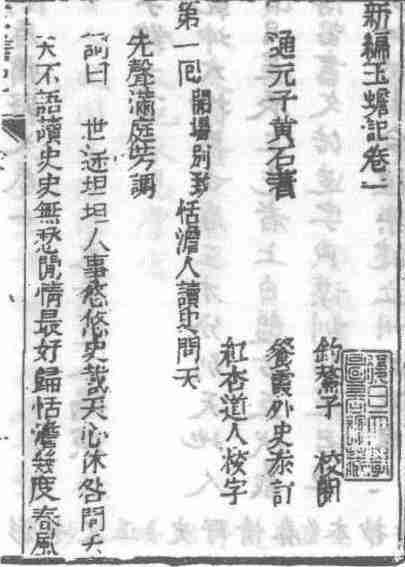 新編玉蟾記卷一
釣鰲子 校閱
通元子黃石著 餐霞外史叅訂
紅杏道人校字
第一囘 開場別致恬澹人讀史問天
先聲滿庭芳調
詞曰 世途坦坦人事悠悠史哉天心休咎問天
天不語讀史史無愁閒情最好歸恬澹幾度春風